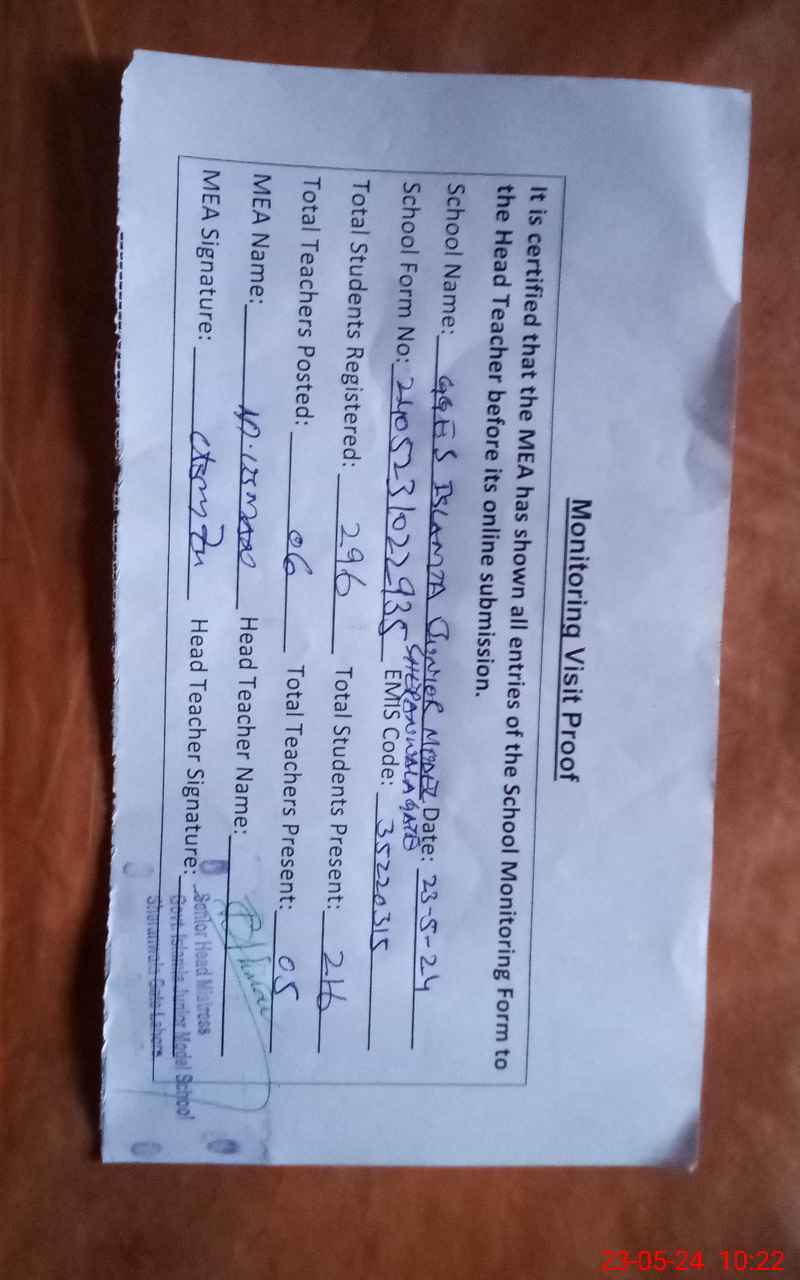 Monitoring Visit Proof
It is certified that the MEA has shown all entries of the School Monitoring Form to
the Head Teacher before its online submission.
School Name: GGES ISLAMIA JUNIOR MODEL Date: 23-5-24
SHERANWALA GATE
School Form No: 2405231022935 EMIS Code: 35220315
Total Students Registered: 296 Total Students Present: 216
Total Teachers Posted: 06 Total Teachers Present: 05
MEA Name: Head Teacher Name:
MEA Signature: Head Teacher Signature:
Senior Head Mistress
Govt. Islamia Junior Model School
Sheranwala Gate Lahore.
23-05-24 10:22